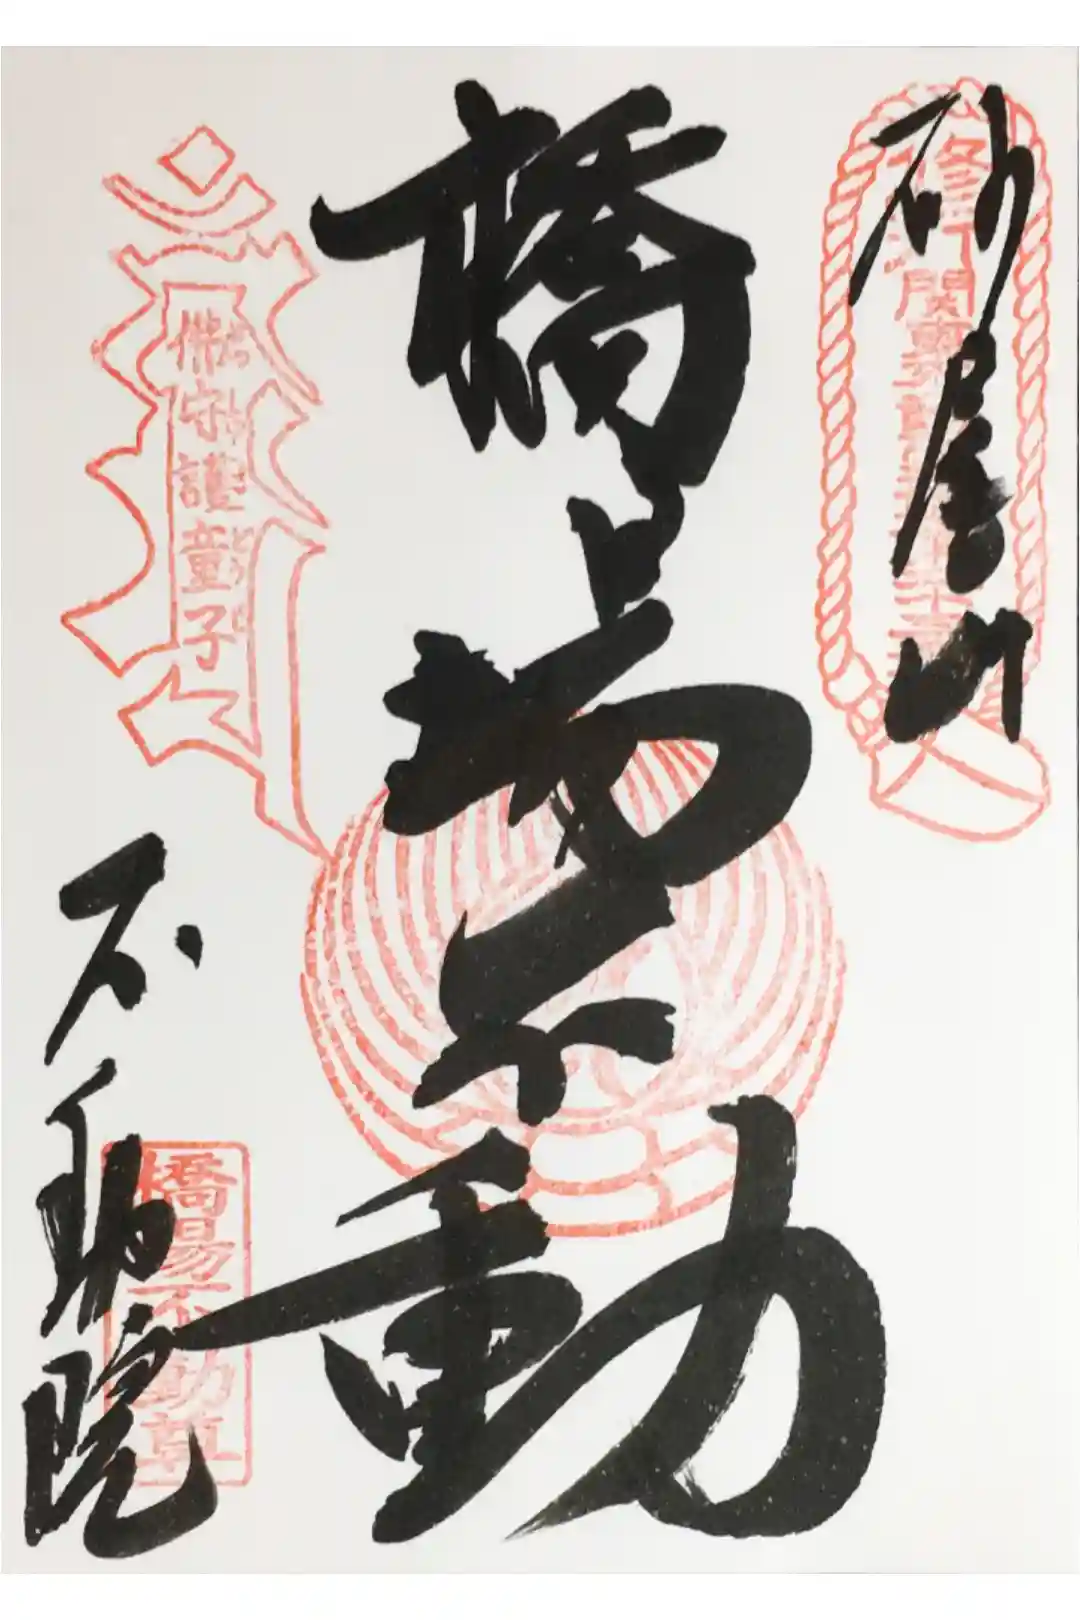 砂尾山
修行
関東
橋場不動
佛守護童子
不動院
橋場不動尊